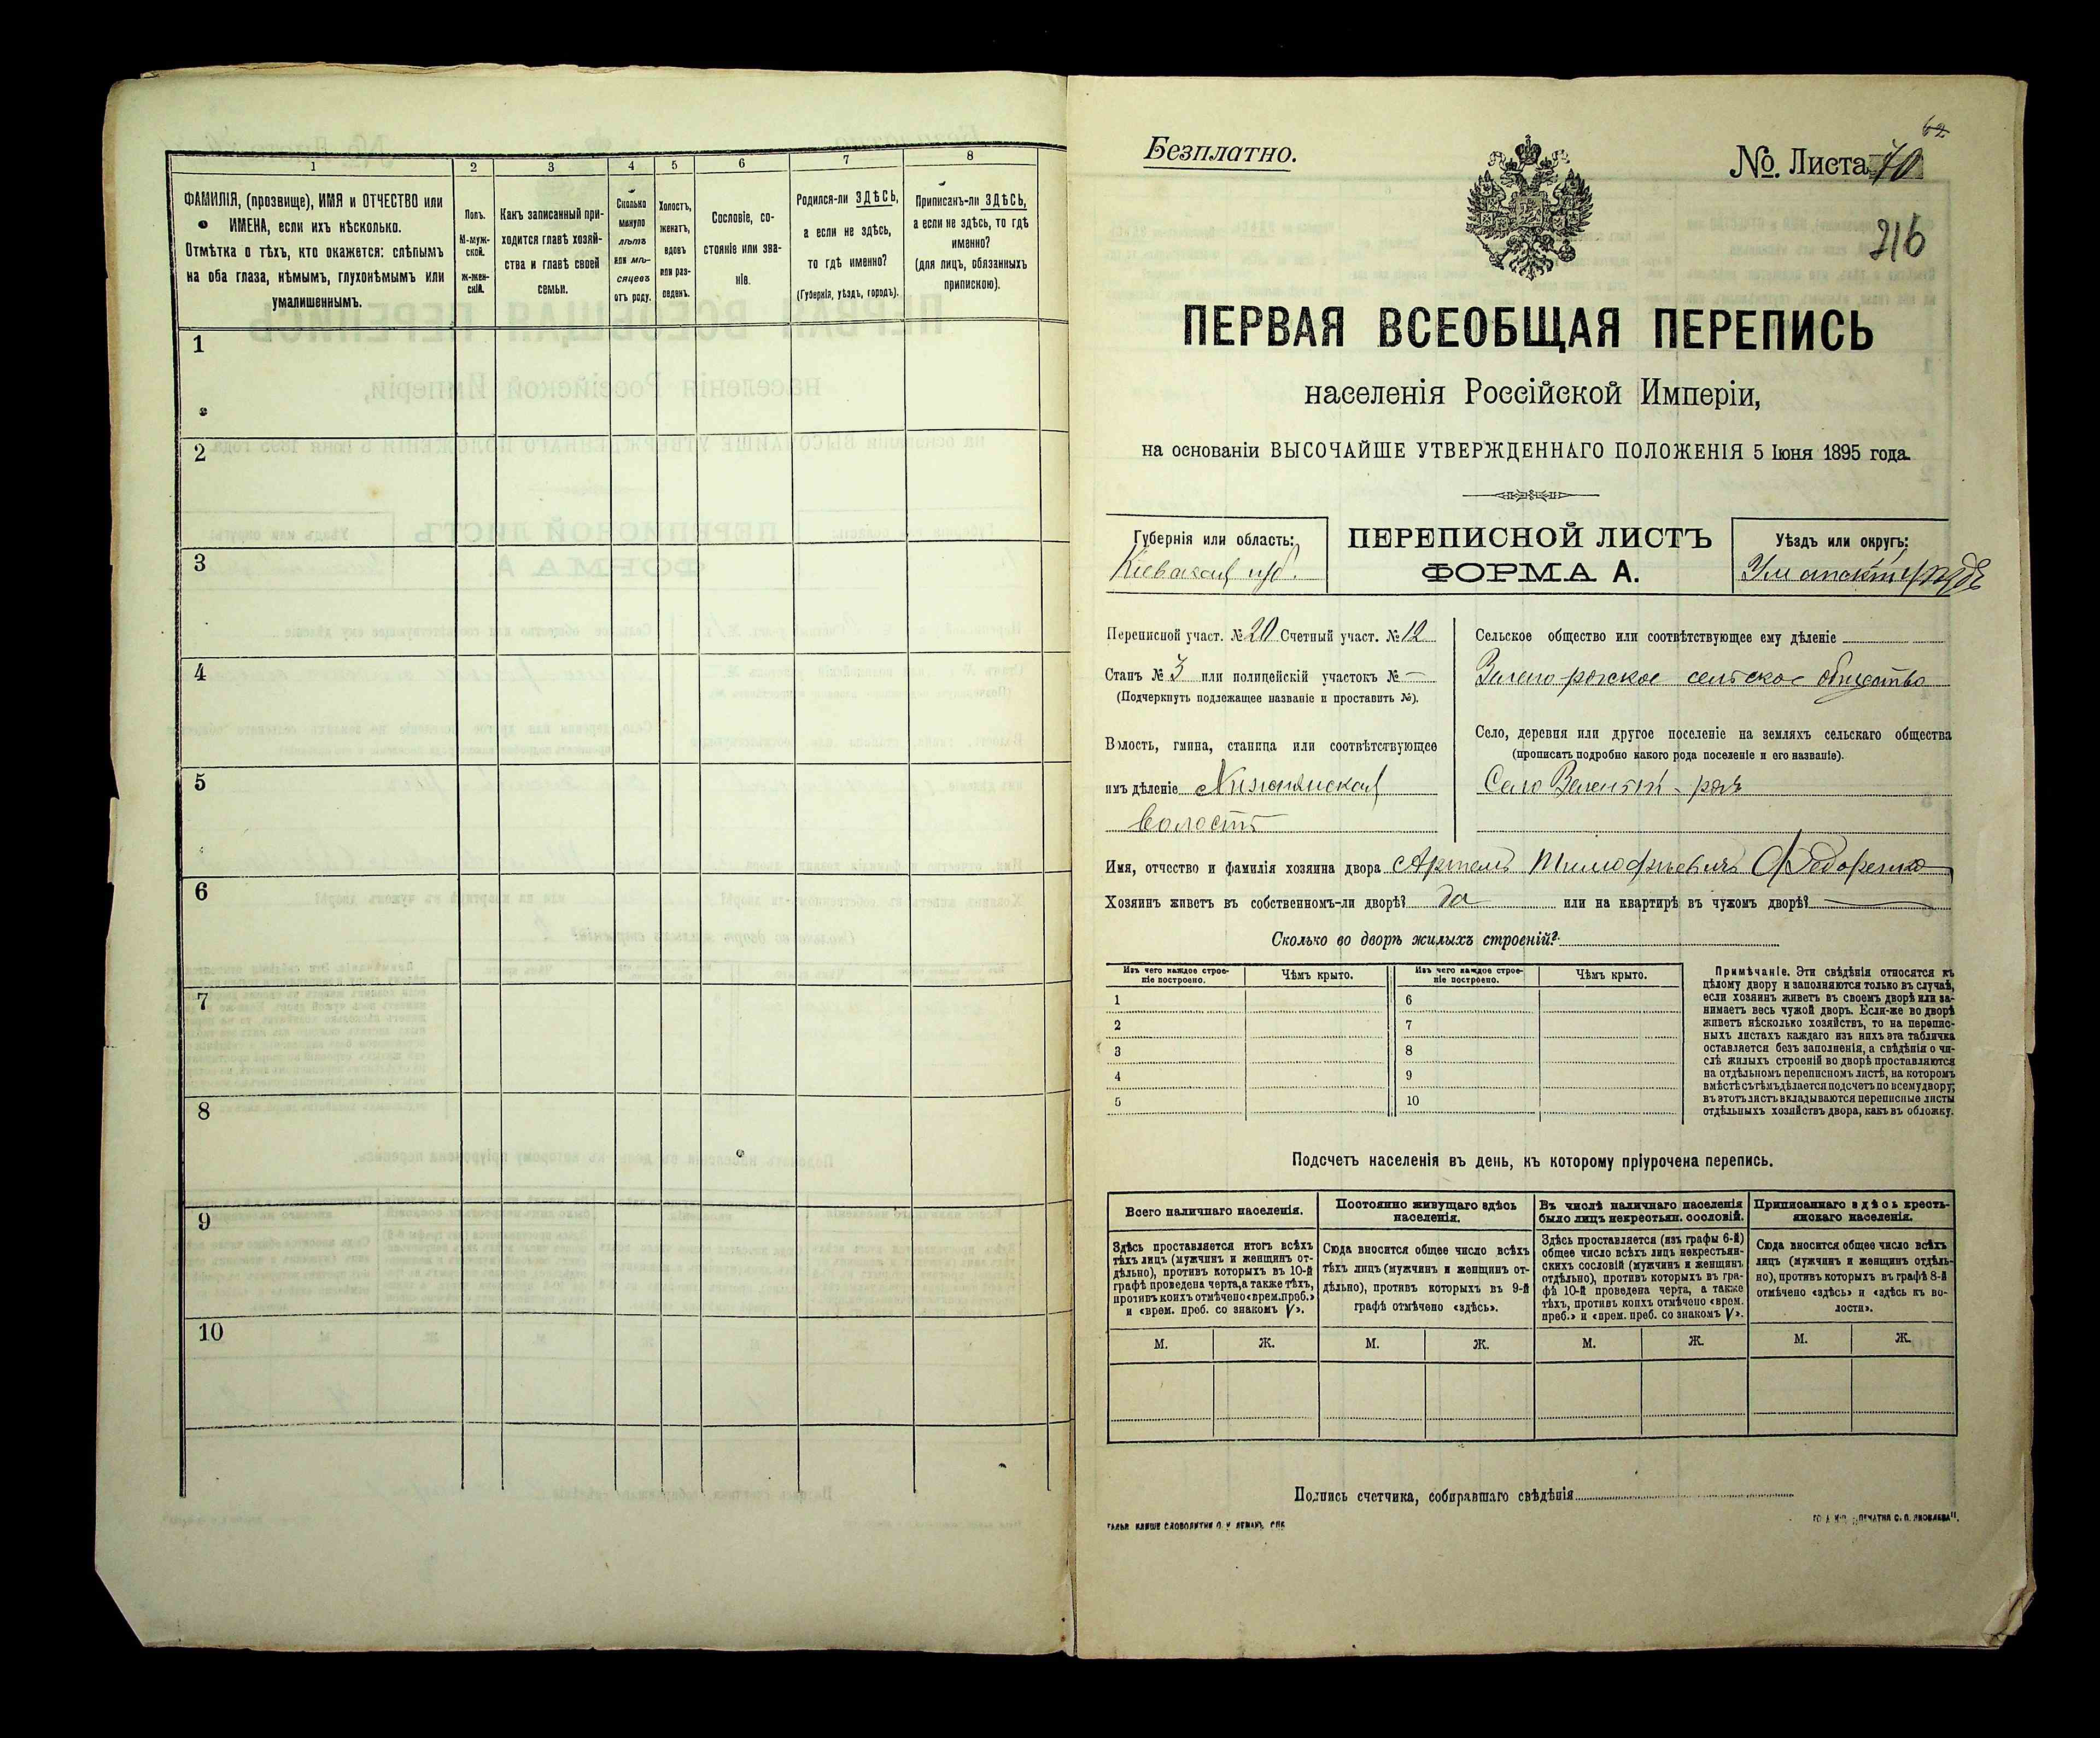 1 2 3 4 5 6 7 8
ФАМИЛІЯ, (прозвище), ИМЯ и ОТЧЕСТВО или
ИМЕНА, если ихъ нѣсколько.
Отмѣтка о тѣхъ, кто окажется: слѣпымъ
на оба глаза, нѣмымъ, глухонѣмымъ или
умалишеннымъ.
Полъ.
М-муж-
ской.
ж-жен-
скій.
Какъ записанный при-
ходится главѣ хозяй-
ства и главѣ своей
семьи.
Сколько
минуло
лѣтъ
или мѣ-
сяцевъ
отъ роду.
Холостъ,
женатъ,
вдовъ
или раз-
веденъ.
Сословіе, со-
стояніе или зва-
ніе.
Родился-ли ЗДѢСЬ,
а если не здѣсь,
то гдѣ именно?
(Губернія, уѣздъ, городъ).
Приписанъ-ли ЗДѢСЬ,
а если не здѣсь, то гдѣ
именно?
(для лицъ, обязанныхъ
припискою).
1
2
3
4
5
6
7
8
9
10
62
Безплатно.
№. Листа 40
216
ПЕРВАЯ ВСЕОБЩАЯ ПЕРЕПИСЬ
населенія Россійской Имперіи,
на основаніи ВЫСОЧАЙШЕ УТВЕРЖДЕННАГО ПОЛОЖЕНІЯ 5 Іюня 1895 года.
Губернія или область:
Кіевская губ.
ПЕРЕПИСНОЙ ЛИСТЪ
ФОРМА А.
Уѣздъ или округъ:
Уманскій уѣздъ
Переписной участ. № 20 Счетный участ. № 12
Станъ № 3 или полицейскій участокъ № —
(Подчеркнуть подлежащее названіе и проставить №).
Волость, гмина, станица или соотвѣтствующее
имъ дѣленіе
волость
Сельское общество или соотвѣтствующее ему дѣленіе
сельское общество
Село, деревня или другое поселеніе на земляхъ сельскаго общества
(прописать подробно какого рода поселеніе и его названіе).
Село Зеленый-рогъ
Имя, отчество и фамилія хозяина двора Артемъ Тимофѣевичъ Федоренко
Хозяинъ живетъ въ собственномъ-ли дворѣ? да или на квартирѣ въ чужомъ дворѣ? —
Сколько во дворѣ жилыхъ строеній?
Изъ чего каждое строе-
ніе построено.
Чѣмъ крыто.
Изъ чего каждое строе-
ніе построено.
Чѣмъ крыто.
1 6
2 7
3 8
4 9
5 10
Примѣчаніе. Эти свѣдѣнія относятся къ
цѣлому двору и заполняются только въ случаѣ,
если хозяинъ живетъ въ своемъ дворѣ или за-
нимаетъ весь чужой дворъ. Если-же во дворѣ
живетъ нѣсколько хозяйствъ, то на перепис-
ныхъ листахъ каждаго изъ нихъ эта табличка
оставляется безъ заполненія, а свѣдѣнія о чи-
слѣ жилыхъ строеній во дворѣ проставляются
на отдѣльномъ переписномъ листѣ, на которомъ
вмѣстѣ съ тѣмъ дѣлается подсчетъ по всему двору;
въ этотъ листъ вкладываются переписные листы
отдѣльныхъ хозяйствъ двора, какъ въ обложку.
Подсчетъ населенія въ день, къ которому пріурочена перепись.
Всего наличнаго населенія.
Здѣсь проставляется итогъ всѣхъ
тѣхъ лицъ (мужчинъ и женщинъ от-
дѣльно), противъ которыхъ въ 10-й
графѣ проведена черта, а также тѣхъ,
противъ коихъ отмѣчено «врем.преб.»
и «врем. преб. со знакомъ V».
Постоянно живущаго здѣсь
населенія.
Сюда вносится общее число всѣхъ
тѣхъ лицъ (мужчинъ и женщинъ от-
дѣльно), противъ которыхъ въ 9-й
графѣ отмѣчено «здѣсь».
Въ числѣ наличнаго населенія
было лицъ некрестьян. сословій.
Здѣсь проставляется (изъ графы 6-й)
общее число всѣхъ лицъ некрестьян-
скихъ сословій (мужчинъ и женщинъ
отдѣльно), противъ которыхъ въ гра-
фѣ 10-й проведена черта, а также
тѣхъ, противъ коихъ отмѣчено «врем.
преб.» и «врем. преб. со знакомъ V».
Приписаннаго здѣсь кресть-
янскаго населенія.
Сюда вносится общее число всѣхъ
лицъ (мужчинъ и женщинъ отдѣль-
но), противъ которыхъ въ графѣ 8-й
отмѣчено «здѣсь» и «здѣсь къ во-
лости».
М. Ж. М. Ж. М. Ж. М. Ж.
Подпись счетчика, собиравшаго свѣдѣнія